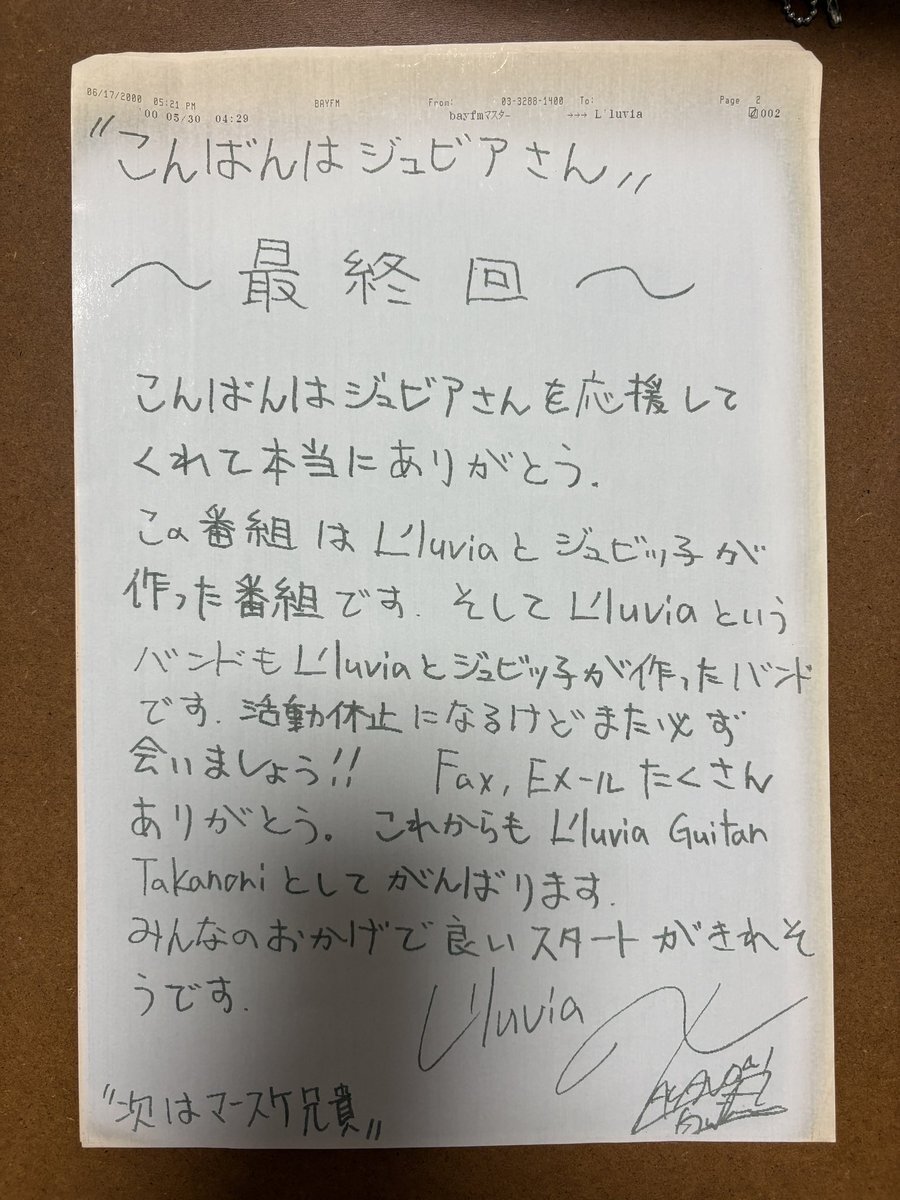 06/17/2000 05:21 PM BAYFM From: 03-3288-1400 To: Page 2
'00 05/30 04:29 bayfmマスター →→→ L'luvia 002
〃こんばんはジュビアさん〃
〜最終回〜
こんばんはジュビアさんを応援して
くれて本当にありがとう.
この番組はL'luviaとジュビッ子が
作った番組です. そしてL'luviaという
バンドもL'luviaとジュビッ子が作ったバンド
です. 活動休止になるけどまた必ず
会いましょう!! Fax, Eメールたくさん
ありがとう。これからもL'luvia Guitar
Takanoriとしてがんばります.
みんなのおかげで良いスタートがきれそ
うです.
L'luvia
〃次はマースケ兄貴〃